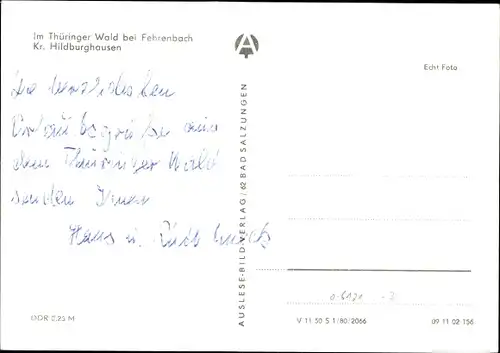 Im Thüringer Wald bei Fehrenbach
Kr. Hildburghausen
Echt Foto
Die herzlichsten
Urlaubsgrüße aus
dem Thüringer Wald
senden Ihnen
Hans u.
AUSLESE-BILD-VERLAG/62 BAD SALZUNGEN
DDR 0,25 M
V 11 50 S 1/80/2066
09 11 02 156